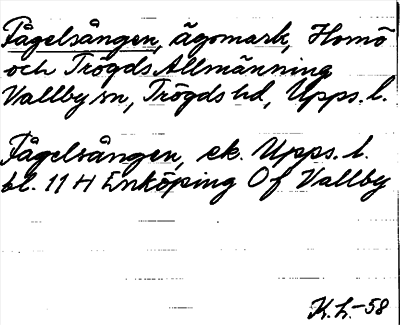 Fågelsången, ägomark, Homö
och Trögds Allmänning
Vallby sn, Trögds hd, Upps. l.
Fågelsången, ek. Upps. l.
bl. 11 H Enköping Of Vallby
K.L.-58